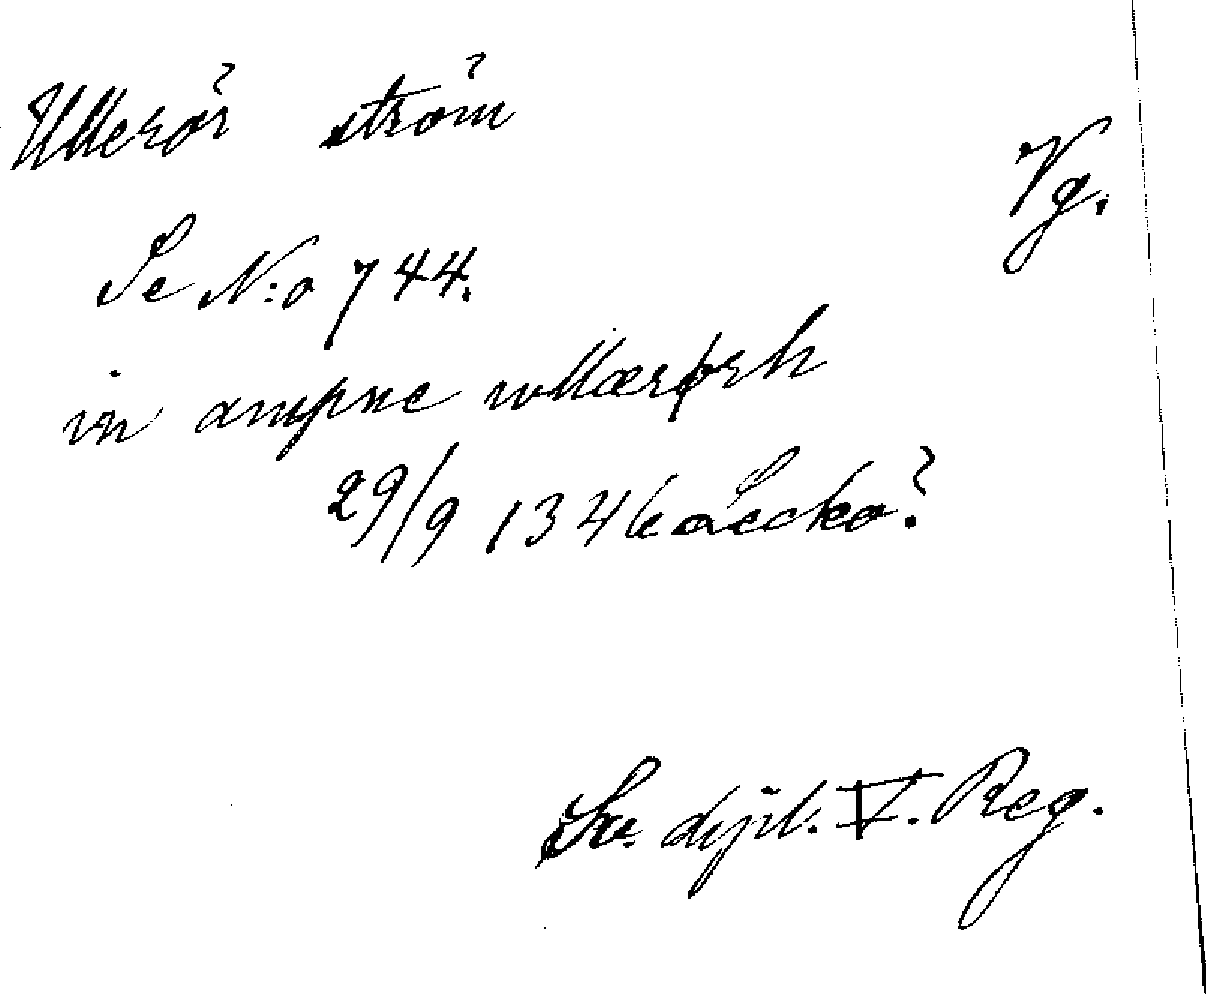 Ullerör ström
Vg.
Se N:o 744.
in ampne wllærørh
29/9 1346 Lecko?
Sv. dipl. V. Reg.